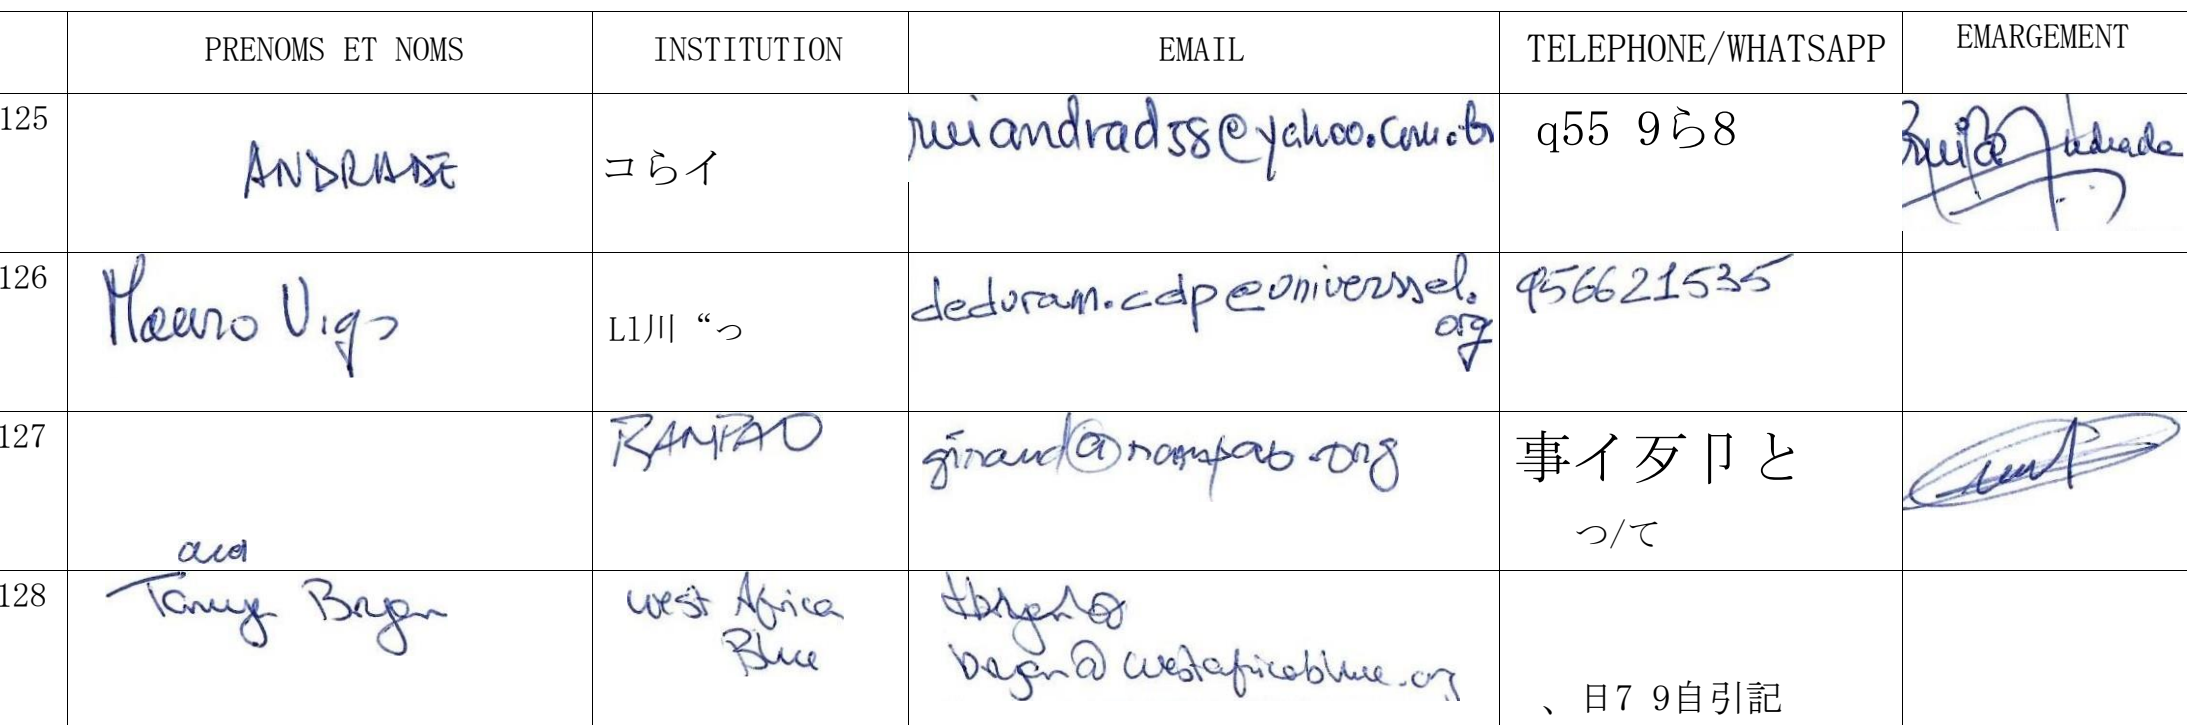 PRENOMS ET NOMS INSTITUTION EMAIL TELEPHONE/WHATSAPP EMARGEMENT
125 ANDRADE コらイ ruiandrad58@yahoo.com.br q55 9ら8 Andrade
126 Mauro Vigo L1川“っ deduram.cdp@universsel.org 956621535
127 RAMPAO giraud@rampao.org 事イ歹卩と
つ/て
128 Bryan west Africa
Blue
bryan@westafricablue.org
、日7 9自引記